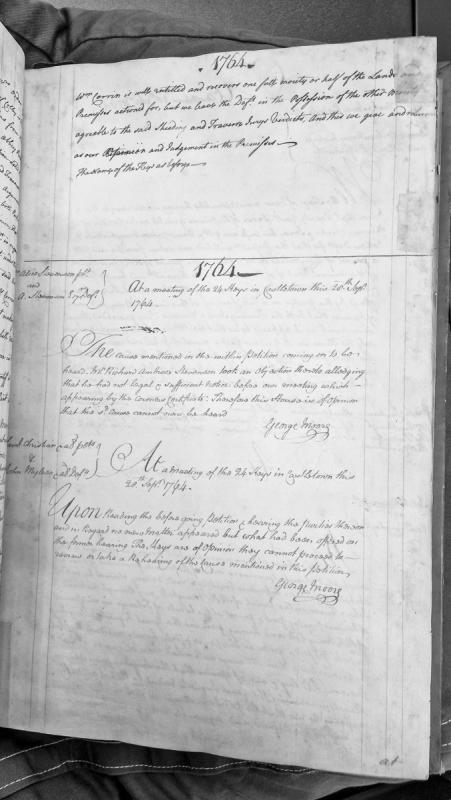 1764.
Wm Corrin is well Entitled and recovers one full moiety or half of the Lands and
Premisses actioned for, but we leave the Defts in the Possession of the other Moiety
agreable to the said Sheeding and Traverse Jurys Verdicts, And this we give and return
as our Opinion and Judgement in the Premisses
The Names of the Keys as before
1764
Alice Stevenson plt
and
A. Stevenson Esqr Deft
At a meeting of the 24 Keys in Castletown this 28th Sept
1764.
The cause mentioned in the within Petition coming on to be
heard. Mr Richard Ambrose Stevenson took an Objection thereto alledging
that he had not legal & sufficient notice before our meeting which
appearing by the Coroners Certificate: Therefore this House is of Opinion
that the sd. cause cannot now be heard
George Moore
Christian & als plts
&
als Defts
At a meeting of the 24 Keys in Castletown this
28th Sept. 1764.
Upon Reading the before going Petition & hearing the Parties thereon
and in Regard no new matter appeared but what had been offered on
the former hearing The Keys are of Opinion they cannot proceed to
review or take a Rehearing of the Cause mentioned in this Petition,
George Moore
at